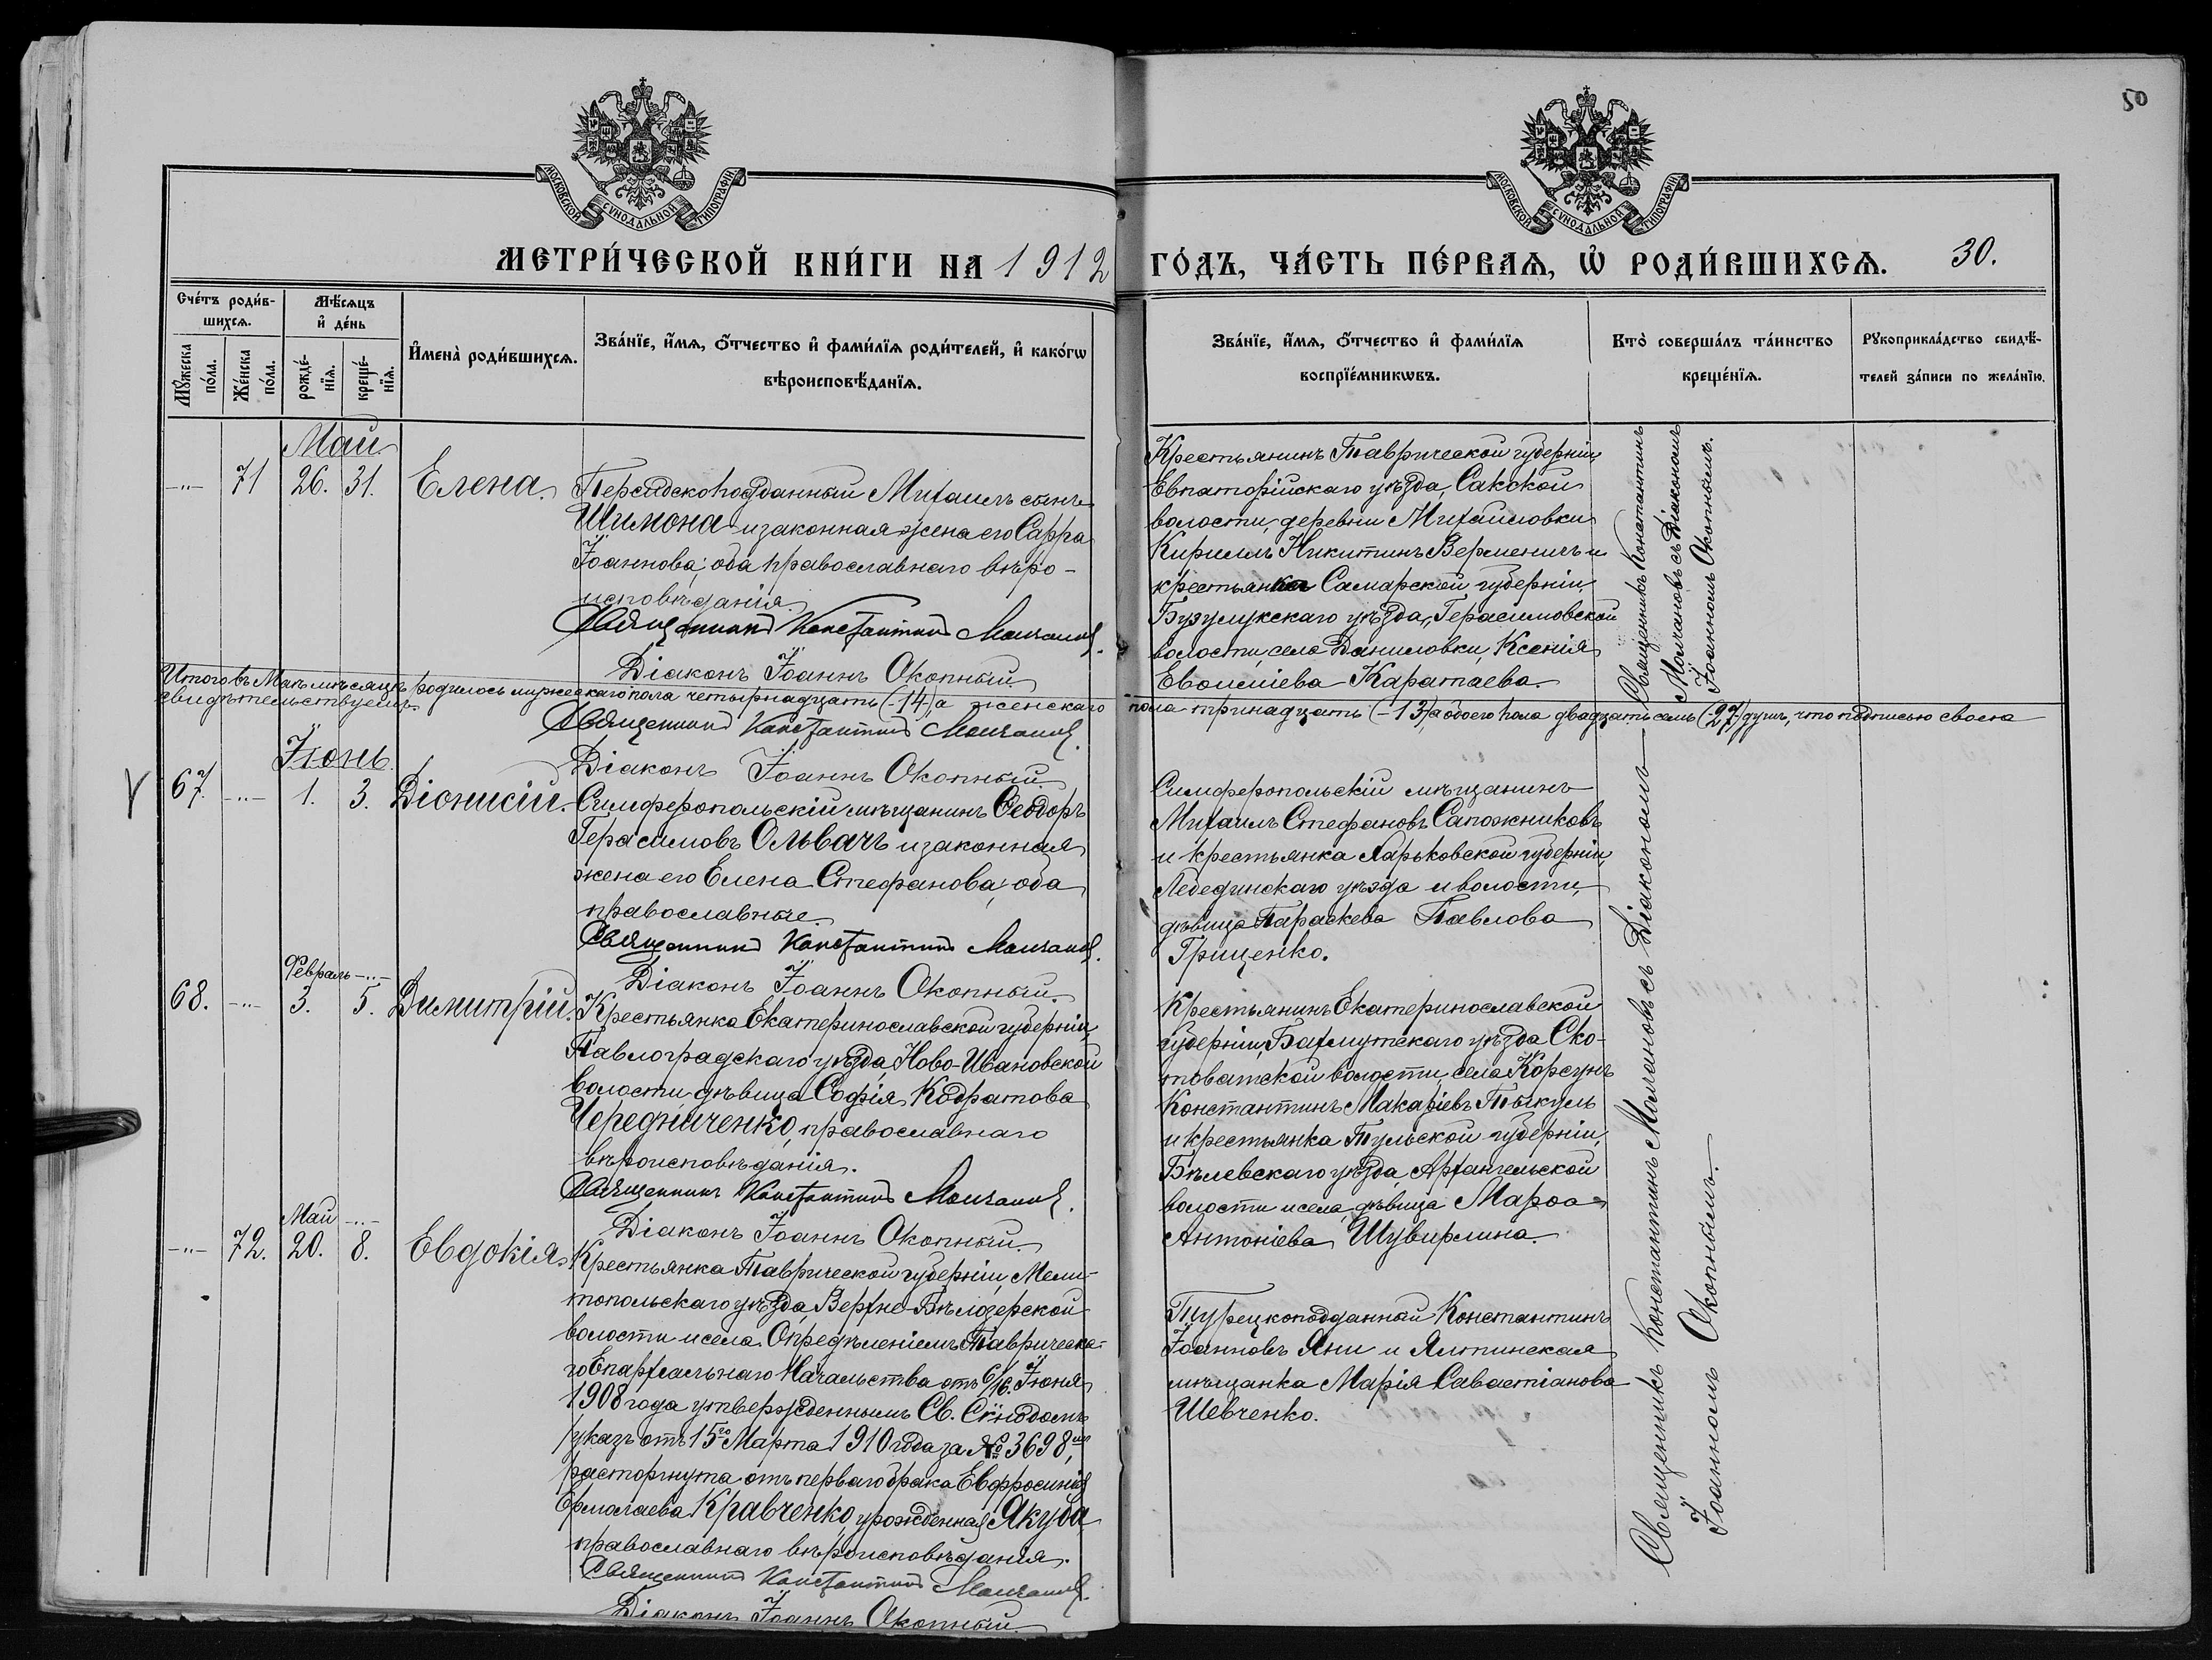 50
МОСКОВСКОЙ СѴНОДАЛЬНОЙ ТИПОГРАФІИ
МОСКОВСКОЙ СѴНОДАЛЬНОЙ ТИПОГРАФІИ
МЕТРИ́ЧЕСКОЙ КНИ́ГИ НА 1912
ГО́ДЪ, ЧА́СТЬ ПЕ́РВАѦ, Ѡ҆ РОДИ́ВШИХСѦ. 30.
Сче́тъ роди́в-
шихсѧ.
Мꙋ́жеска по́ла.
Же́нска по́ла.
Мѣ́сѧцъ
и҆ де́нь
рожде́-
нїѧ.
креще́-
нїѧ.
И҆мена̀ роди́вшихсѧ.
Зва́нїе, и҆́мѧ, ѻ҆́тчество и҆ фами́лїѧ роди́телей, и҆ како́гѡ
вѣроисповѣ́данїѧ.
Зва́нїе, и҆́мѧ, ѻ҆́тчество и҆ фами́лїѧ
воспрїе́мникѡвъ.
Кто̀ соверша́лъ та́инство
креще́нїѧ.
Рꙋкоприкла́дство свидѣ́-
телей за́писи по жела́нїю.
Май
-"- 71 26. 31. Елена.
Персидскоподданный Михаилъ сынъ
Шимона и законная жена его Сарра
Іоаннова; оба православнаго вѣро-
исповѣданія.
Священникъ Константинъ Молчановъ.
Діаконъ Іоаннъ Окопный.
Крестьянинъ Таврической губерніи,
Евпаторійскаго уѣзда, Сакской
волости, деревни Михайловки
Кириллъ Никитинъ Верменичъ и
крестьянка Самарской губерніи,
Бузулукскаго уѣзда, Герасимовской
волости, села Даниловки, Ксенія
Евѳиміева Каратаева.
Священникъ Константинъ
Молчановъ съ Діакономъ
Іоанномъ Окопнымъ.
Итого въ Маѣ мѣсяцѣ родилось мужескаго пола четырнадцать (-14) а женскаго пола тринадцать (-13), а обоего пола двадцать семь (27) душъ, что подписью своею
свидѣтельствуемъ.
Священникъ Константинъ Молчановъ.
Діаконъ Іоаннъ Окопный.
Іюнь.
67. -"- 1. 3. Діонисій.
Симферопольскій мѣщанинъ Ѳеодоръ
Герасимовъ Ольвачъ и законная
жена его Елена Стефанова; оба
православные
Священникъ Константинъ Молчановъ.
Діаконъ Іоаннъ Окопный.
Симферопольскій мѣщанинъ
Михаилъ Стефановъ Сапожниковъ
и крестьянка Харьковской губерніи,
Лебединскаго уѣзда и волости,
дѣвица Параскева Павлова
Грищенко.
Февраль -"-
68. -"- 3. 5. Димитрій.
Крестьянка Екатеринославской губерніи,
Павлоградскаго уѣзда, Ново-Ивановской
волости дѣвица Софія Кодратова
Чередниченко, православнаго
вѣроисповѣданія.
Священникъ Константинъ Молчановъ.
Діаконъ Іоаннъ Окопный.
Крестьянинъ Екатеринославской
губерніи, Бахмутскаго уѣзда Ско-
товатской волости, села Корсунъ
Константинъ Макаріевъ Тыкуль
и крестьянка Тульской губерніи,
Бѣлевскаго уѣзда, Архангельской
волости и села, дѣвица Марѳа
Антоніева Шувирлина.
Май -"-
-"- 72. 20. 8. Евдокія.
Крестьянка Таврической губерніи, Мели-
топольскаго уѣзда, Верхне-Бѣлозерской
волости и села. Опредѣленіемъ Таврическа-
го Епархіальнаго Начальства отъ 6/16 Іюня
1908 года утвержденнымъ Св. Сѵнодомъ
указъ отъ 15го Марта 1910 года за № 3698,
расторгнута отъ перваго брака Евфросинія
Ермолаева Кравченко, урожденная Якуба
православнаго вѣроисповѣданія.
Священникъ Константинъ Молчановъ.
Діаконъ Іоаннъ Окопный.
Турецкоподданный Константинъ
Іоанновъ Яни и Ялтинская
мѣщанка Марія Савастіанова
Шевченко.
Священникъ Константинъ Молчановъ съ Діакономъ
Іоанномъ Окопнымъ.